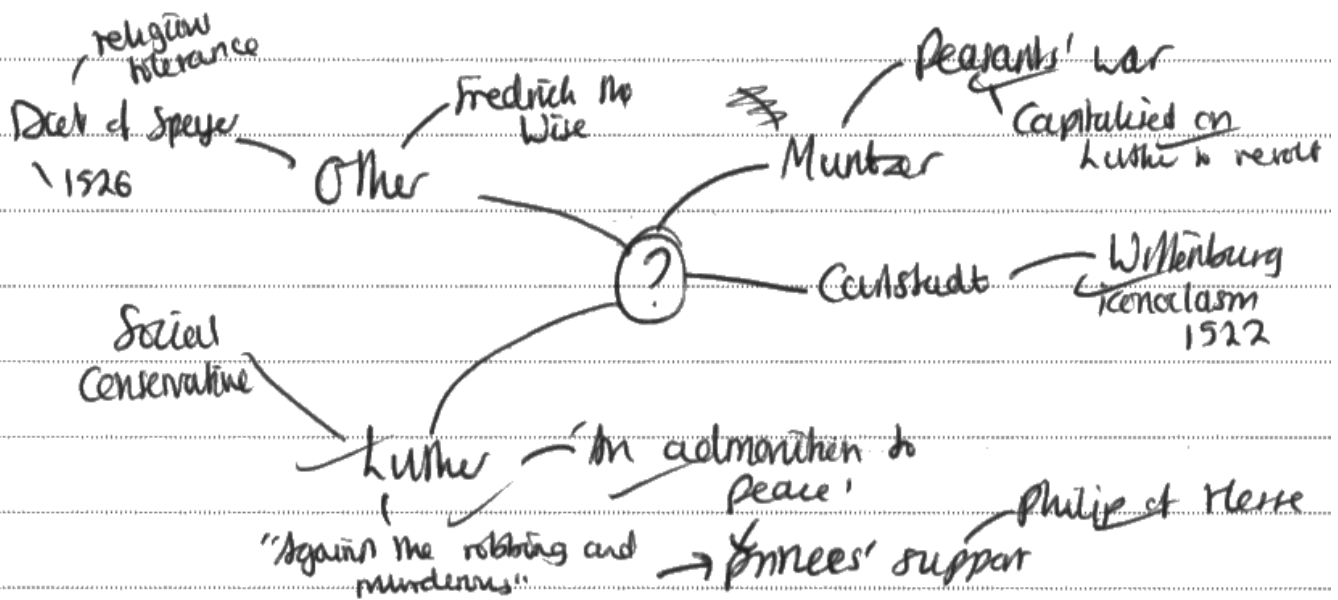 religion
tolerance
Diet of Speyer
1526
Other
Fredrich the
Wise
Muntzer
Peasants' war
Capitalised on
Luther to revolt
?
Carlstadt
Wittenburg
iconoclasm
1522
Social
Conservative
Luther
'An admonition to
peace'
"Against the robbing and
murderous"
Princes' support
Philip of Hesse